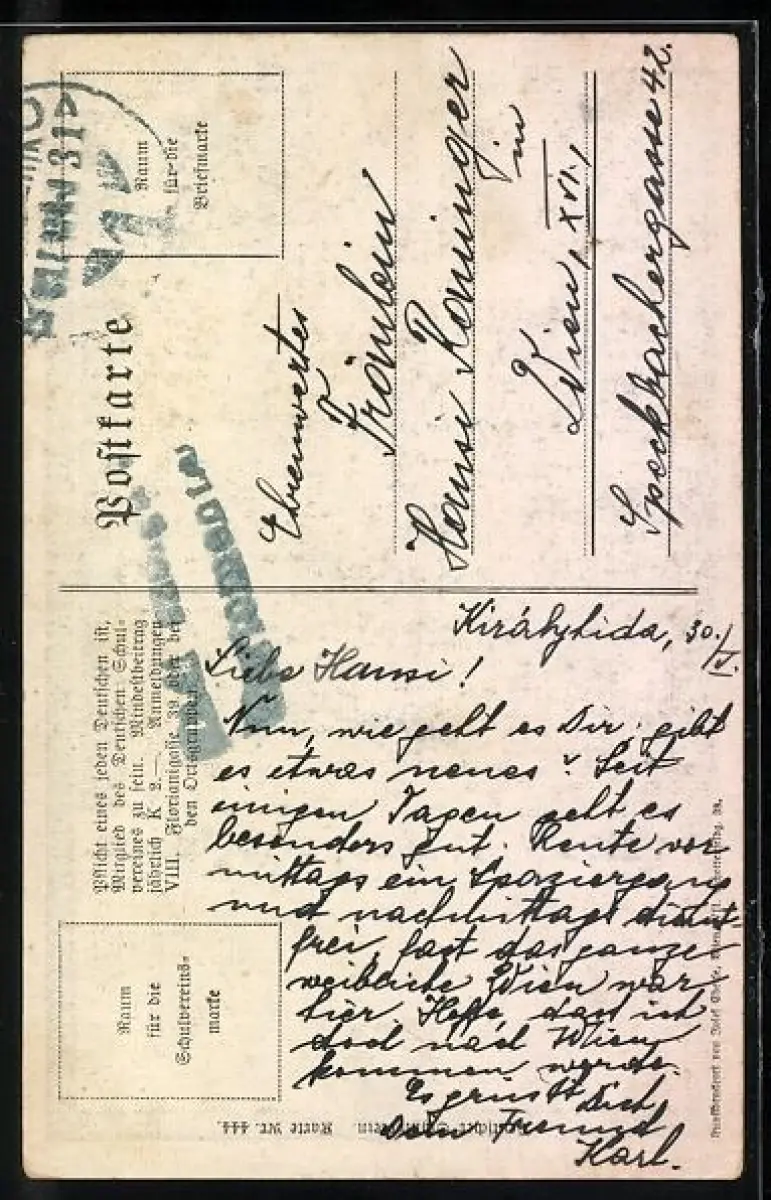 Postkarte
Raum
für die
Briefmarke
Ehrenwertes
Fräulein
Hansi Roninger
in
Wien, XVI.,
Speckbachergasse 42.
Pflicht eines jeden Deutschen ist,
Mitglied des Deutschen Schul-
vereines zu sein. Mindestbeitrag
jährlich K 2.—. Anmeldungen
VIII. Florianigasse 39 oder bei
den Ortsgruppen.
Raum
für die
Schulvereins-
marke
Karte Nr. 444.
Királyhida, 30./V.
Liebe Hansi!
Nun, wie geht es Dir, gibt
es etwas neues? Seit
einigen Tagen geht es
besonders gut. Heute vor
mittags ein Spaziergang
und nachmittags dienst-
frei, fast das ganze
weibliche Wien war
hier. Hoffe, das ich
doch nach Wien
kommen werde.
Es grüsst Dich
Dein Freund
Karl.